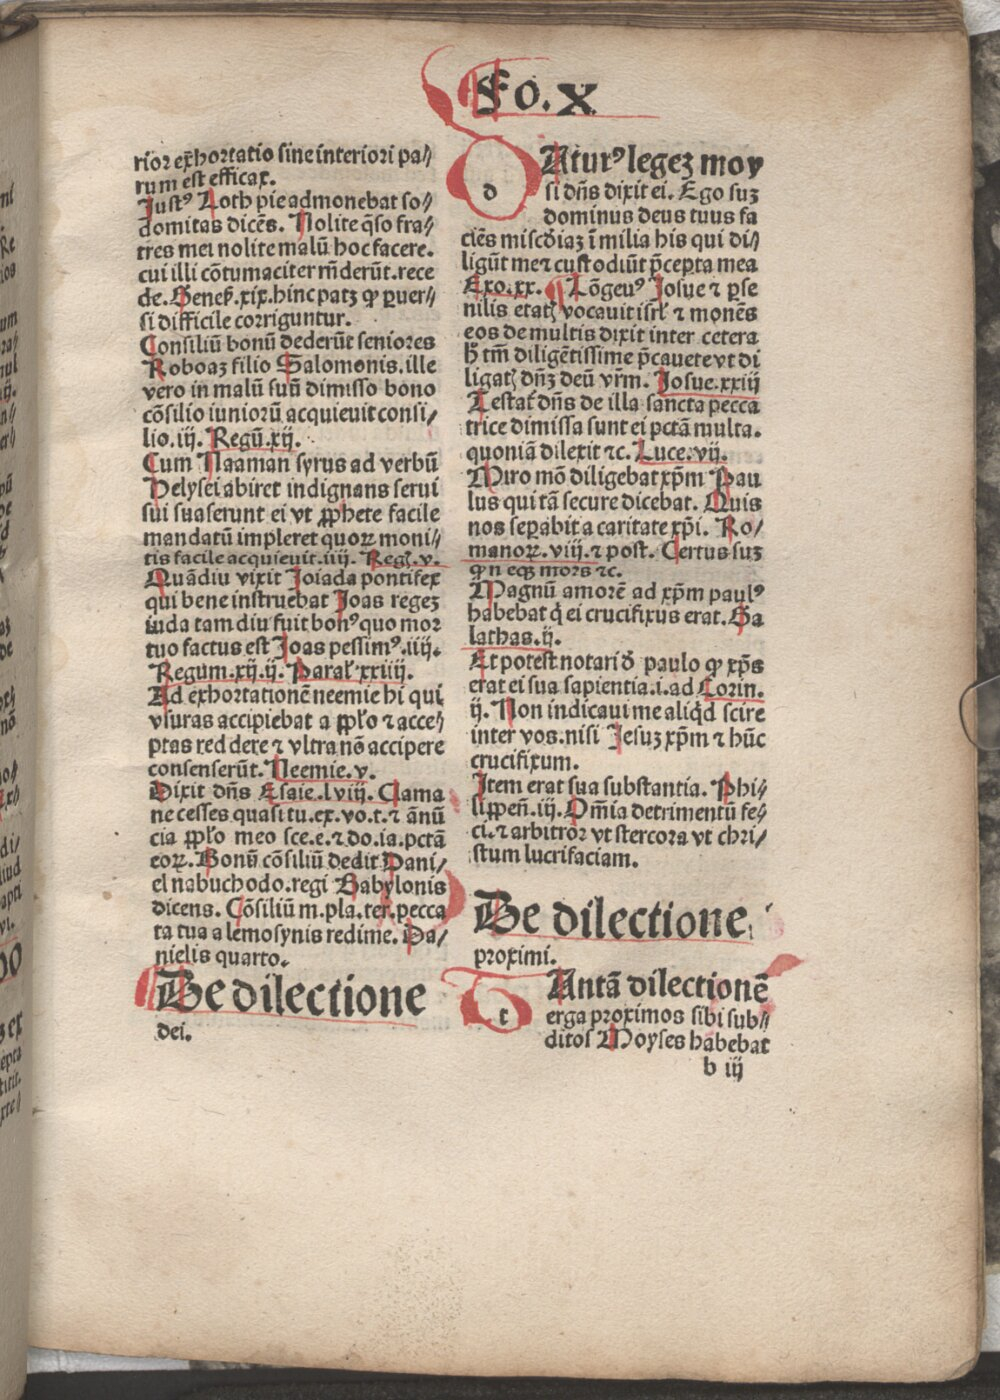 Fo. X
rior exhortatio sine interiori pa⸗
rum est efficax.
Justꝰ Loth pie admonebat so⸗
domitas dicēs. Nolite q̄so fra⸗
tres mei nolite malū hoc facere.
cui illi cōtumaciter rn̄derūt. rece
de. Genes. xix. hinc patꝫ ꝙ ꝑuer⸗
si difficile corriguntur.
Consiliū bonū dederūt seniores
Roboaꝫ filio Salomonis. ille
vero in malū suū dimisso bono
cōsilio iuniorū acquieuit consi⸗
lio. iij. Regū. xij.
Cum Naaman syrus ad verbū
Helysei abiret indignans serui
sui suaserunt ei vt ꝓphete facile
mandatū impleret quoꝝ moni⸗
tis facile acquieuit. iiij. Regꝫ. v.
Quādiu vixit Joiada pontifex
qui bene instruebat Joas regeꝫ
iuda tam diu fuit bonꝰ quo mor
tuo factus est Joas pessimꝰ. iiij.
Regum. xij. ij. Paral'. xxiiij.
Ad exhortationē neemie hi qui
vsuras accipiebāt a pp̄lo ⁊ acce⸗
ptas reddere ⁊ vltra nō accipere
consenserūt. Neemie. v.
Dixit dn̄s Esaie. lviii. Clama
ne cesses quasi tu. ex. vo. t. ⁊ ānū
cia pp̄lo meo sce. e. ⁊ do. ia. pctā
eoꝝ. Bonū cōsiliū dedit Dani⸗
el nabuchodo. regi Babylonis
dicens. Cōsiliū m. pla. ter. pecca
ta tua alemosynis redime. Da⸗
nielis quarto.
De dilectione
dei.
d
Aturꝰ legeꝫ moy
si dn̄s dixit ei. Ego suꝫ
dominus deus tuus fa
ciēs miscd̄iaꝫ ī milia his qui di⸗
ligūt me ⁊ custodiūt p̄cepta mea
Exo. xx. Lōgeuꝰ Josue ⁊ ꝑse
nilis etatꝭ vocauit isrl' ⁊ monēs
eos de multis dixit inter cetera
h̄ tm̄ diligētissime p̄cauete vt di
ligatꝭ dn̄ꝫ deū vr̄m. Josue. xxiij
Testat' dn̄s de illa sancta pecca
trice dimissa sunt ei pctā multa.
quoniā dilexit ⁊c. Luce. vij.
Miro mō diligebat xp̄m Pau
lus qui tā secure dicebat. Quis
nos seꝑabit a caritate xp̄i. Ro⸗
manoꝝ. viii. ⁊ post. Certus suꝫ
ꝙ neqꝫ mors ⁊c.
Magnū amorē ad xp̄m paulꝰ
habebat q̇ ei crucifixus erat. Ga
lathas. ij.
Et potest notari d̄ paulo ꝙ xp̄s
erat ei sua sapientia. i. ad Corin.
ij. Non indicaui me aliqd̄ scire
inter vos. nisi Jesuꝫ xp̄m ⁊ hūc
crucifixum.
Item erat sua substantia. Phi⸗
lippeñ. iij. Om̄ia detrimentū fe⸗
ci. ⁊ arbitror vt stercora vt chri⸗
stum lucrifaciam.
De dilectione
proximi.
t
Antā dilectionē
erga proximos sibi sub⸗
ditos Moyses habebat
b iij